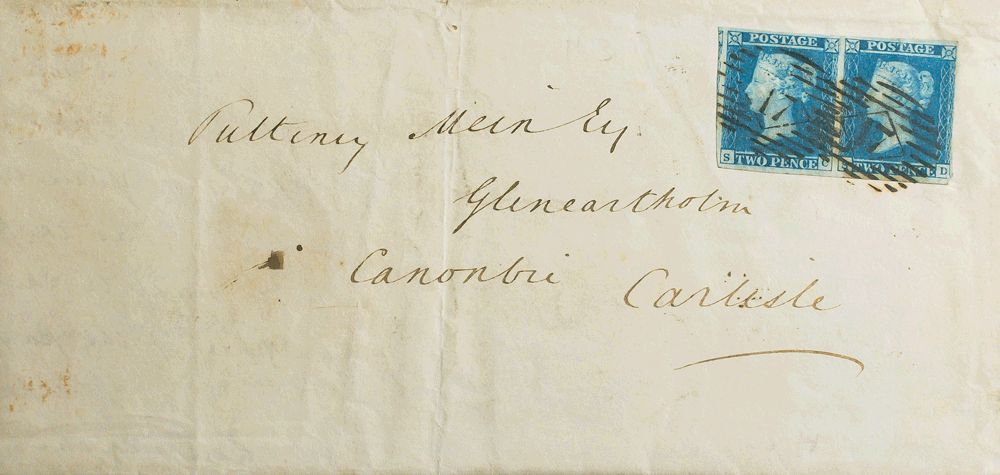 POSTAGE POSTAGE
S TWO PENCE C TWO PENCE D
17
Pulteney Mein Esq
Gleneartholm
Canonbie Carlisle